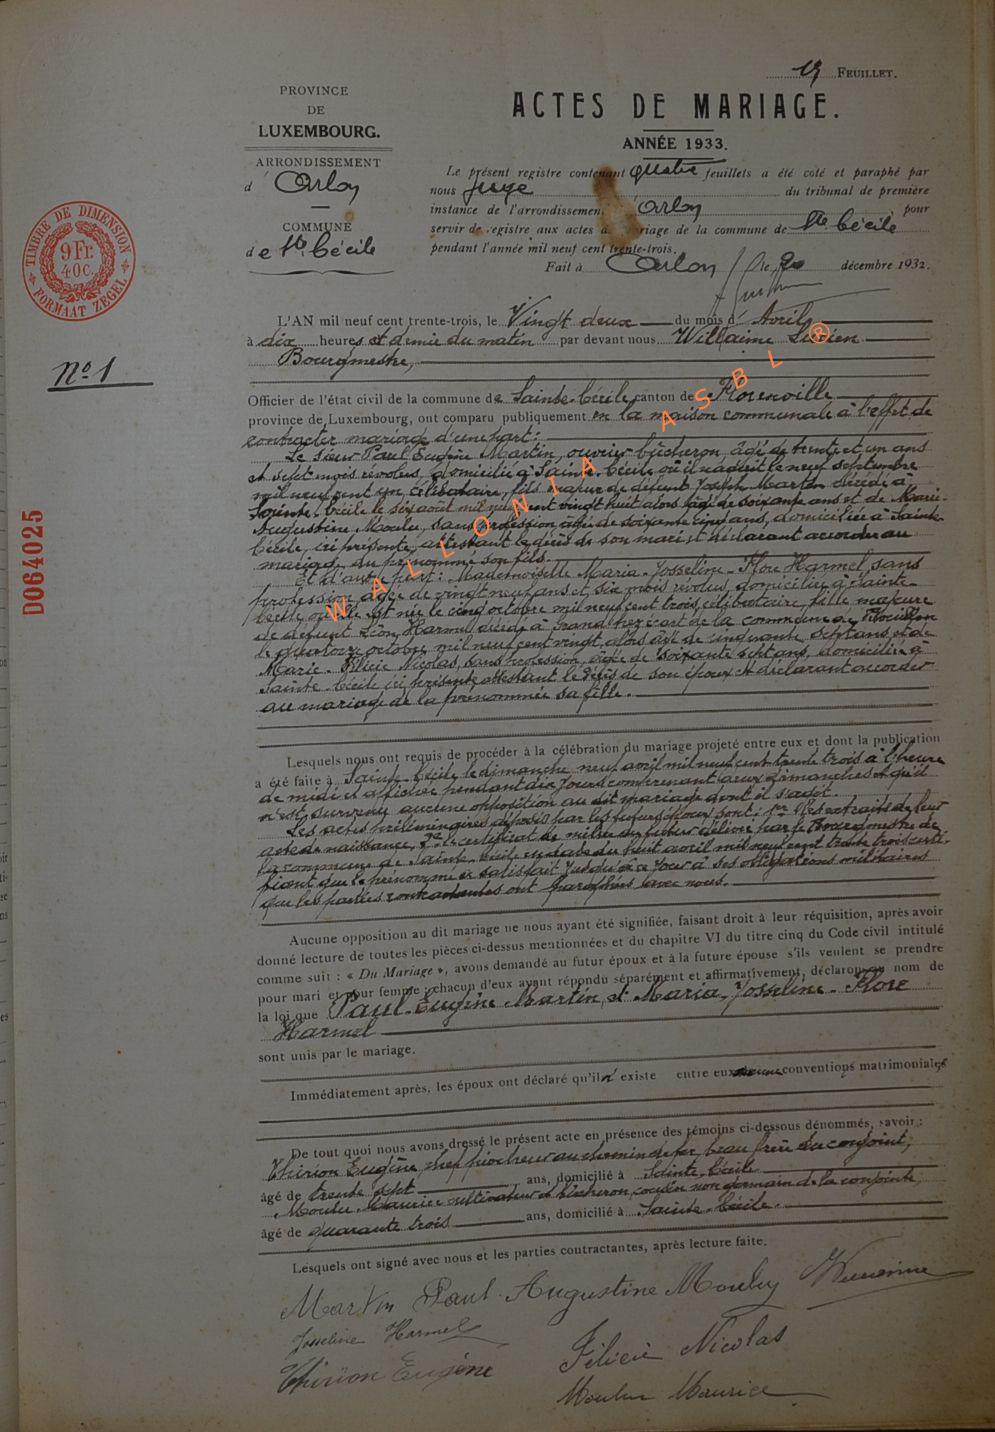 19 FEUILLET.
PROVINCE
DE
LUXEMBOURG.
ARRONDISSEMENT
d' Arlon
COMMUNE
de Ste Cécile
ACTES DE MARIAGE.
ANNÉE 1933.
Le présent registre contenant quatre feuillets a été coté et paraphé par
nous juge du tribunal de première
instance de l'arrondissement Arlon pour
servir de registre aux actes de mariage de la commune de Ste Cécile
pendant l'année mil neuf cent trente-trois.
Fait à Arlon le 20 décembre 1932.
TIMBRE DE DIMENSION
9 Fr.
40 C.
FORMAAT ZEGEL
No 1
D064025
L'AN mil neuf cent trente-trois, le Vingt deux du mois d' Avril
à dix heures et demie du matin par devant nous Willaime Lucien
Bourgmestre,
Officier de l'état civil de la commune de Sainte-Cécile canton de Florenville
province de Luxembourg, ont comparu publiquement en la maison communale à l'effet de
contracter mariage d'une part:
Le sieur Paul Eugène Martin, ouvrier bûcheron, âgé de trente et un ans
et sept mois révolus, domicilié à Sainte-Cécile où il naquit le neuf septembre
mil neuf cent un, célibataire, fils majeur de défunt Joseph Martin décédé à
Sainte-Cécile le six août mil neuf cent vingt huit alors âgé de soixante ans et de Marie-
Augustine Moulu, sans profession, âgée de soixante cinq ans, domiciliée à Sainte-
Cécile, ici présente, attestant le décès de son mari et déclarant accorder au
mariage du prénommé son fils.
Et d'autre part: Mademoiselle Maria-Josseline-Flore Harmel, sans
profession âgée de vingt neuf ans et six mois révolus, domiciliée à Sainte-
Cécile où elle est née le cinq octobre mil neuf cent trois, célibataire, fille majeure
de défunt Léon Harmel décédé à de la commune de
le quatorze octobre mil neuf cent vingt, alors âgé de cinquante sept ans et de
Marie-Félicie Nicolas, sans profession, âgée de soixante sept ans, domiciliée à
Sainte-Cécile ici présente attestant le décès de son époux et déclarant accorder
au mariage de la prénommée sa fille.
WALLONIA ASBL ®
Lesquels nous ont requis de procéder à la célébration du mariage projeté entre eux et dont la publication
a été faite à Sainte-Cécile le dimanche neuf avril mil neuf cent trente trois à l'heure
de midi et affichée pendant dix jours comprenant deux dimanches et qu'il
n'est survenu aucune opposition au dit mariage dont il s'agit.
Les actes préliminaires déposés par les futurs époux sont: 1er les extraits de leur
acte de naissance, 2e le certificat de milice du futur délivré par le Bourgmestre de
la commune de Sainte-Cécile en date du huit avril mil neuf cent trente trois certi-
fiant que le prénommé a satisfait jusqu'à ce jour à ses obligations militaires
que les parties contractantes ont paraphés avec nous.
Aucune opposition au dit mariage ne nous ayant été signifiée, faisant droit à leur réquisition, après avoir
donné lecture de toutes les pièces ci-dessus mentionnées et du chapitre VI du titre cinq du Code civil intitulé
comme suit : « Du Mariage », avons demandé au futur époux et à la future épouse s'ils veulent se prendre
pour mari et pour femme ; chacun d'eux ayant répondu séparément et affirmativement, déclarons au nom de
la loi que Paul-Eugène Martin, et Maria-Josseline-Flore
Harmel
sont unis par le mariage.
Immédiatement après, les époux ont déclaré qu'il n'existe entre eux aucune conventions matrimoniales
De tout quoi nous avons dressé le présent acte en présence des témoins ci-dessous dénommés, savoir :
Thirion Eugène, chef piocheur au chemin de fer, beau frère du conjoint,
âgé de trente sept ans, domicilié à Sainte-Cécile
Moulu Maurice cultivateur et bûcheron, cousin non germain de la conjointe,
âgé de quarante trois ans, domicilié à Sainte-Cécile.
Lesquels ont signé avec nous et les parties contractantes, après lecture faite.
Martin Paul Augustine Moulu Willaime
Josseline Harmel
Félicie Nicolas
Thirion Eugène
Moulu Maurice